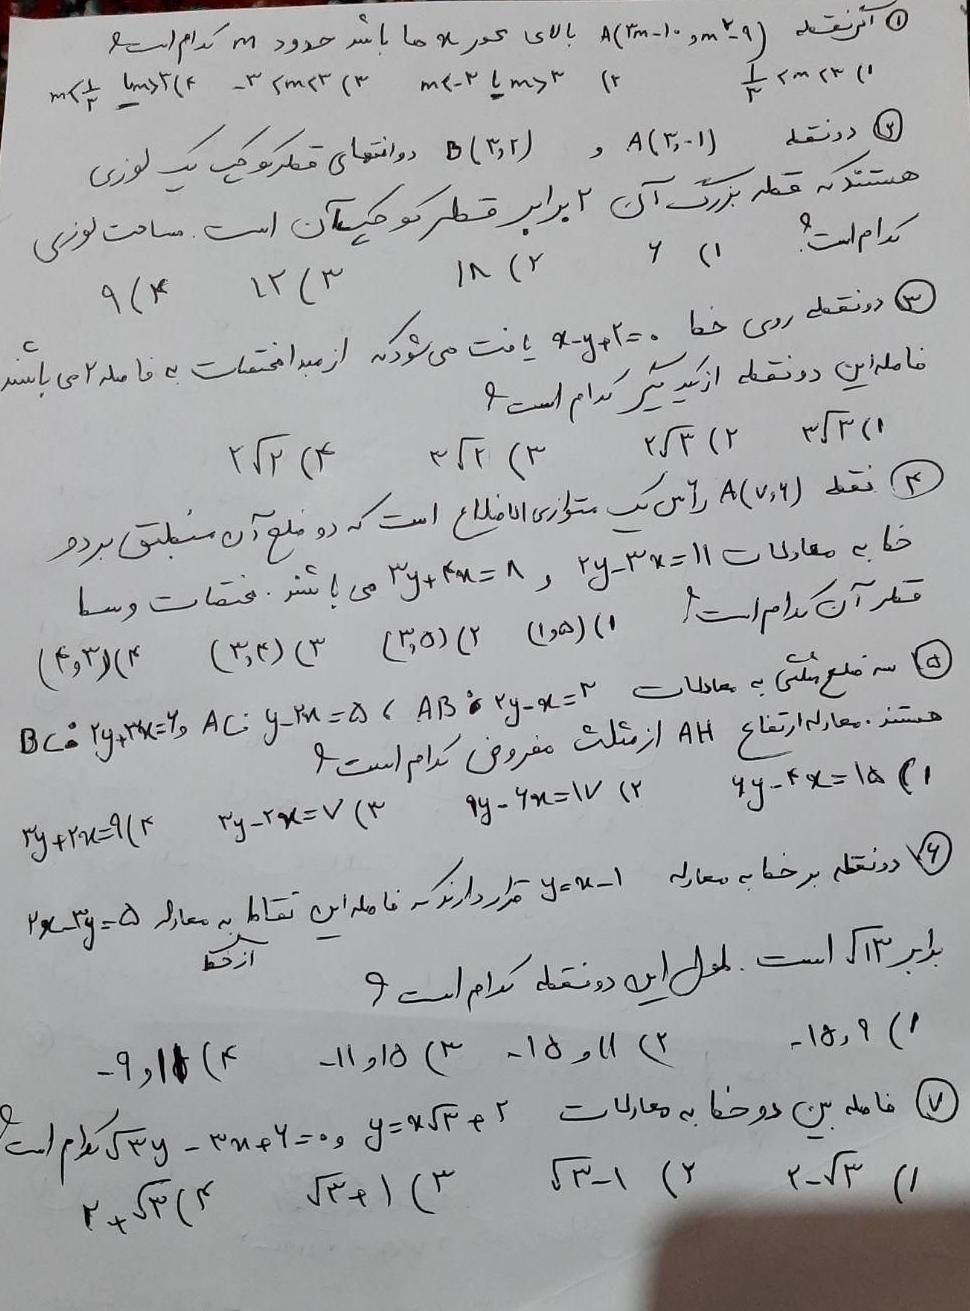 ① اگر نقطه A(۳m-۱۰, m²-۹) بالای محور x ها باشد حدود m کدام است؟
۱) ۱/۳ < m < ۳ ۲) m>۳ یا m<-۳ ۳) -۳ < m < ۳ ۴) m>۳ یا m< ۱/۳
② دو نقطه A(۳,-۱) و B(۳,۲) دو انتهای قطر کوچک یک لوزی
هستند که قطر بزرگ آن ۲ برابر قطر کوچک آن است. مساحت لوزی
کدام است؟ ۱) ۶ ۲) ۱۸ ۳) ۱۲ ۴) ۹
③ دو نقطه روی خط x-y+۲=۰ یافت می‌شود که از مبدا مختصات به فاصله ۲ می باشند
فاصله این دو نقطه از یکدیگر کدام است؟
۱) ۳√۳ ۲) ۲√۳ ۳) ۳√۲ ۴) ۲√۲
④ نقطه A(۷,۶) راس یک متوازی الاضلاع است که دو ضلع آن منطبق بر دو
خط به معادلات ۲y-۳x=۱۱ و ۳y+۴x=۸ می باشند. مختصات وسط
قطر آن کدام است؟ ۱) (۱,۵) ۲) (۳,۵) ۳) (۳,۴) ۴) (۴,۳)
⑤ سه ضلع مثلثی به معادلات AB: ۲y-x=۳ ، AC: y-۲x=۵ و BC: ۲y+۳x=۶
هستند. معادله ارتفاع AH از مثلث مفروض کدام است؟
۱) ۶y-۴x=۱۵ ۲) ۹y-۶x=۱۷ ۳) ۳y-۲x=۷ ۴) ۳y+۲x=۹
⑥ دو نقطه بر خط به معادله y=x-۱ قرار دارند که فاصله این نقاط به معادله ۲x-۳y=۵
از خط
برابر √۱۳ است. طول این دو نقطه کدام است؟
۱) -۱۵, ۹ ۲) -۱۵ و ۱۱ ۳) -۱۱ و ۱۵ ۴) -۹ و ۱۵
⑦ فاصله بین دو خط به معادلات y=x√۳+۲ و √۳y-۳x+۶=۰ کدام است؟
۱) ۲-√۳ ۲) √۳-۱ ۳) √۳+۱ ۴) ۲+√۳